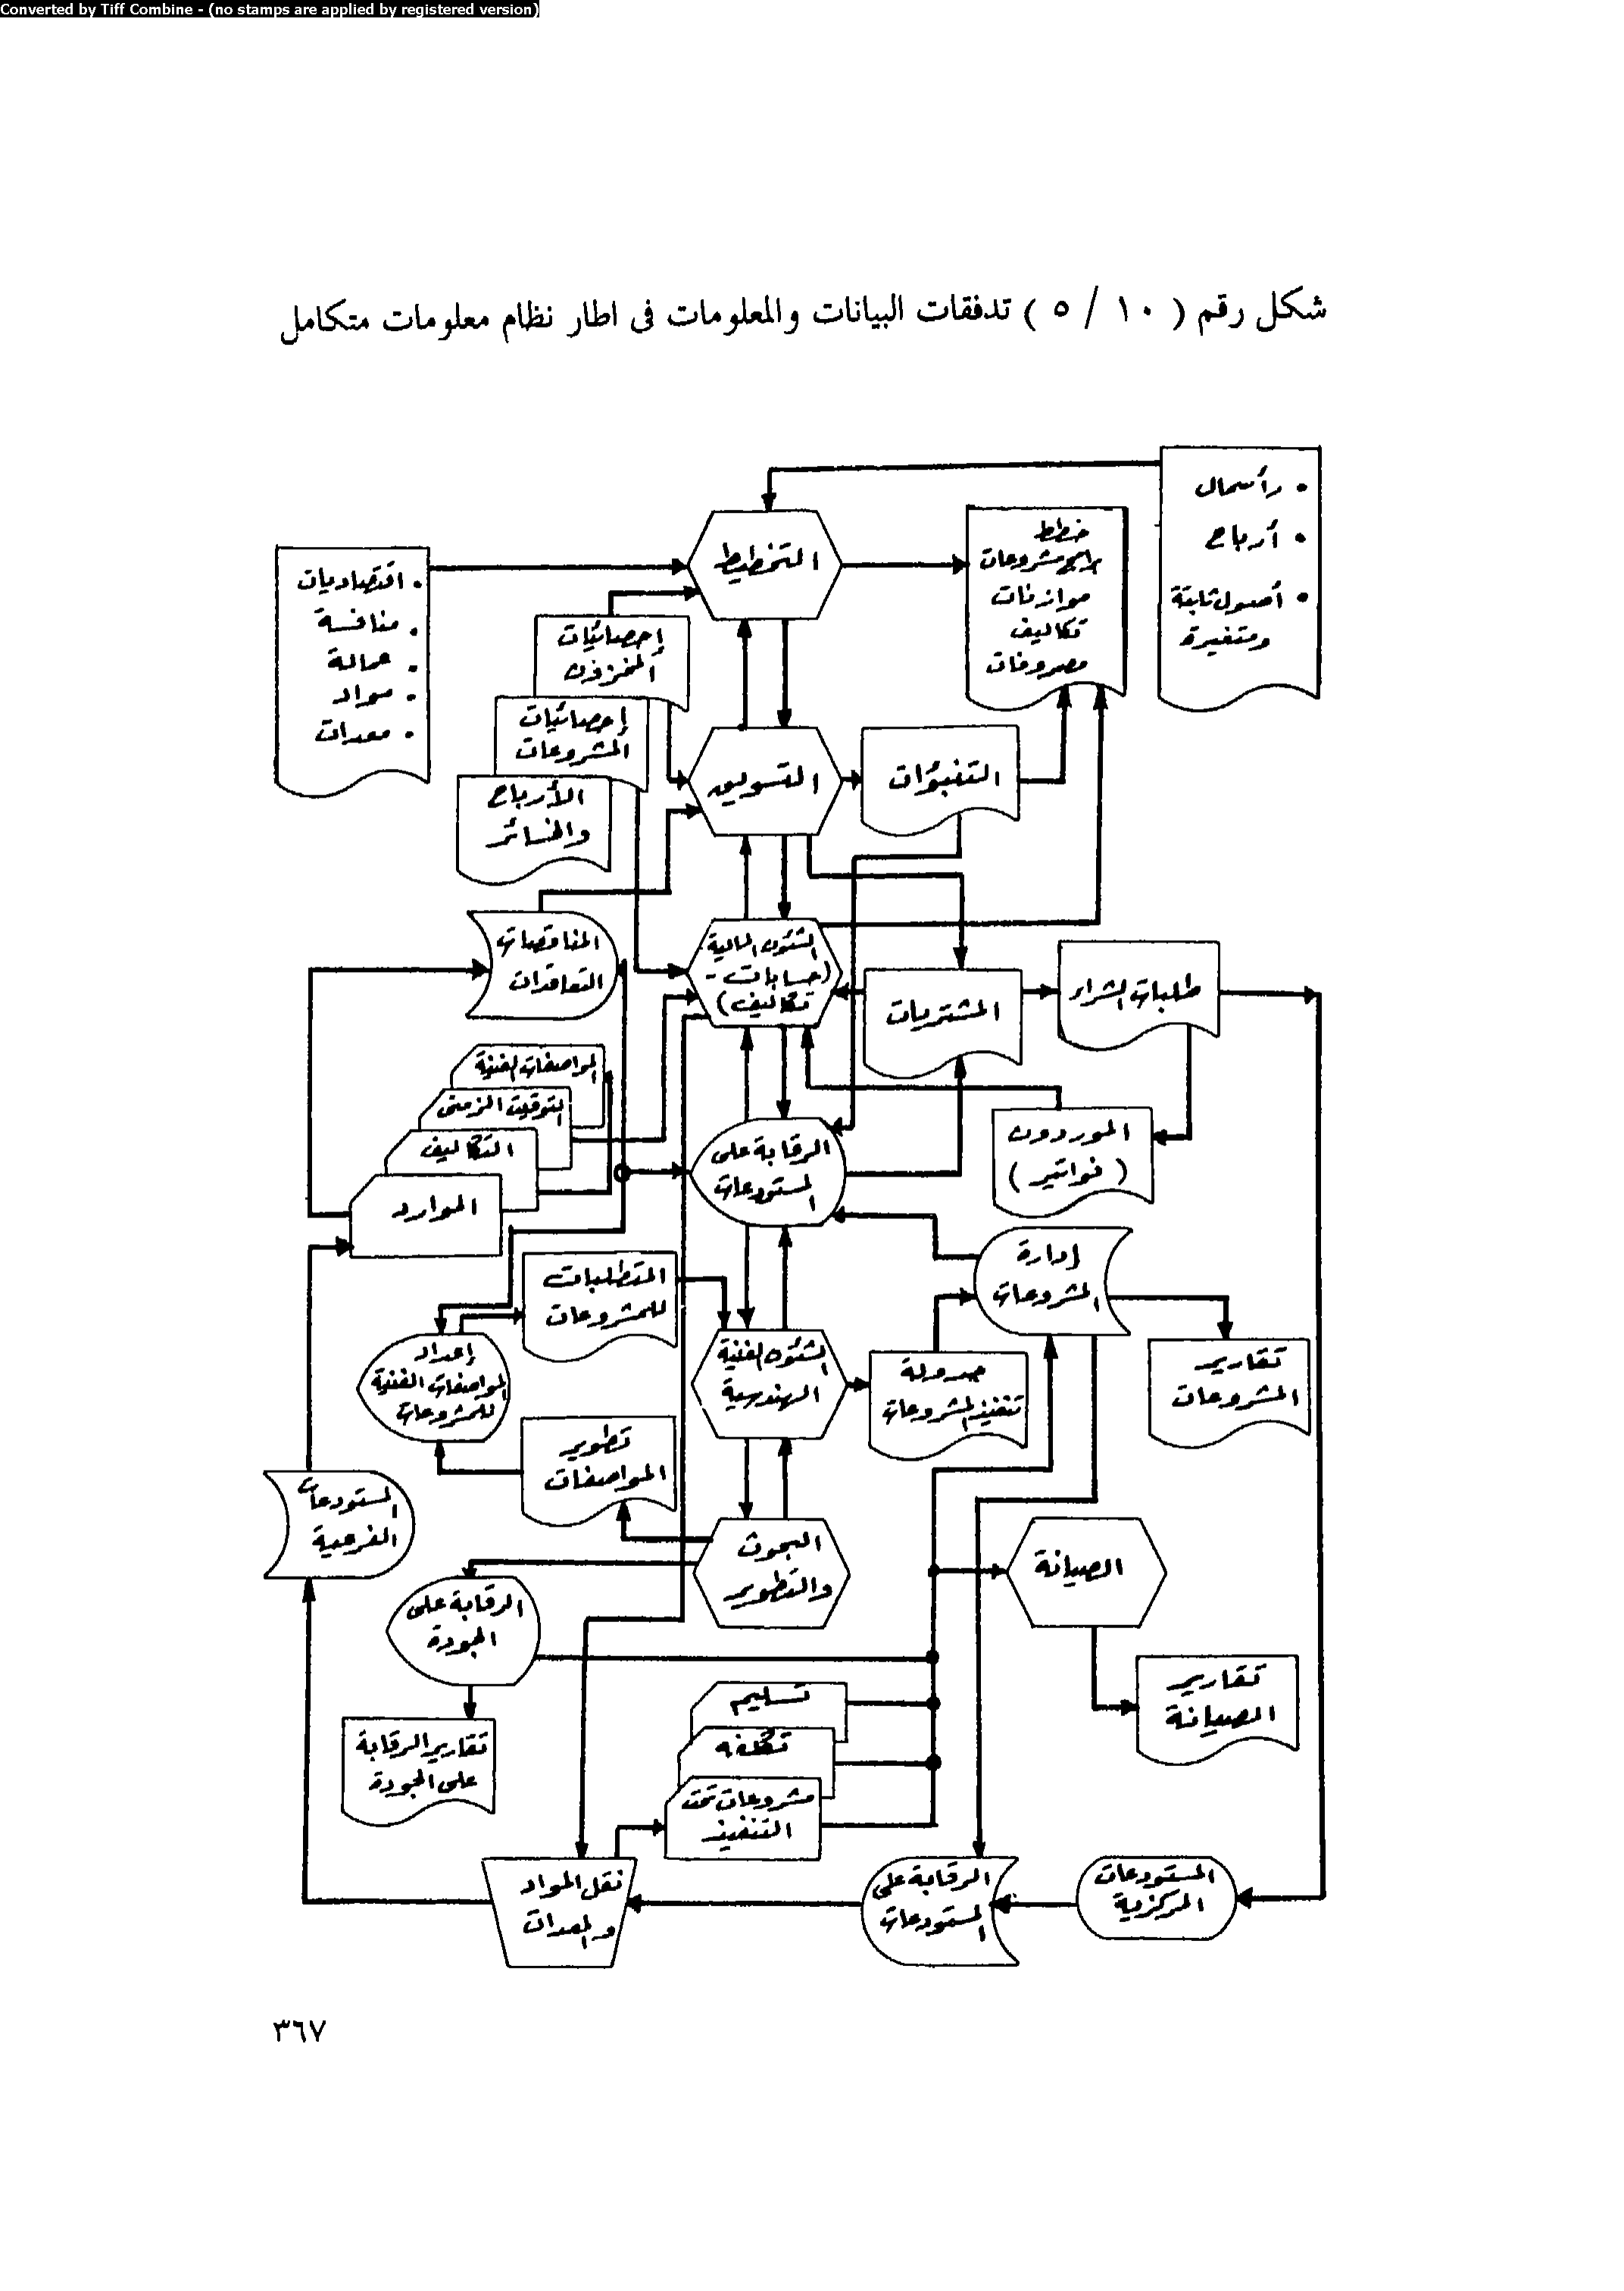 Converted by Tiff Combine - (no stamps are applied by registered version)
شكل رقم ( ١٠ / ٥ ) تدفقات البيانات والمعلومات فى اطار نظام معلومات متكامل
• رأسمال
• أرباح
• أصول ثابتة
ومتغيرة
خطط
برامج مشروعات
موازنات
تكاليف
مصروفات
التخطيط
• اقتصاديات
• منافسة
• عمالة
• مواد
• معدات
إحصائيات
المخزون
إحصائيات
المشروعات
الأرباح
والخسائر
التسويق
التنبؤات
المناقصات
التعاقدات
الشئون المالية
(حسابات -
تكاليف)
المشتريات
طلبات الشراء
المواصفات الفنية
التوقيت الزمنى
التكاليف
الموارد
الرقابة على
المستودعات
الموردون
( فواتير )
إدارة
المشروعات
المتطلبات
للمشروعات
إعداد
المواصفات الفنية
للمشروعات
الشئون الفنية
الهندسية
جدولة
تنفيذ المشروعات
تقارير
المشروعات
تطوير
المواصفات
المستودعات
الفرعية
البحوث
والتطوير
الصيانة
الرقابة على
الجودة
تقارير
الصيانة
تسليم
تكلفه
مشروعات تحت
التنفيذ
تقارير الرقابة
على الجودة
نقل المواد
والمعدات
الرقابة على
المستودعات
المستودعات
المركزية
٣٦٧